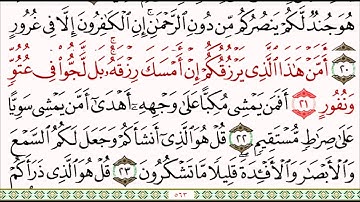 هُوَ جُندٌ لَّكُمْ يَنصُرُكُم مِّن دُونِ ٱلرَّحْمَٰنِ ۚ إِنِ ٱلْكَٰفِرُونَ إِلَّا فِى غُرُورٍ
٢٠ أَمَّنْ هَٰذَا ٱلَّذِى يَرْزُقُكُمْ إِنْ أَمْسَكَ رِزْقَهُۥ ۚ بَل لَّجُّوا۟ فِى عُتُوٍّ
وَنُفُورٍ ٢١ أَفَمَن يَمْشِى مُكِبًّا عَلَىٰ وَجْهِهِۦٓ أَهْدَىٰٓ أَمَّن يَمْشِى سَوِيًّا
عَلَىٰ صِرَٰطٍ مُّسْتَقِيمٍ ٢٢ قُلْ هُوَ ٱلَّذِىٓ أَنشَأَكُمْ وَجَعَلَ لَكُمُ ٱلسَّمْعَ
وَٱلْأَبْصَٰرَ وَٱلْأَفْـِٔدَةَ ۖ قَلِيلًا مَّا تَشْكُرُونَ ٢٣ قُلْ هُوَ ٱلَّذِى ذَرَأَكُمْ
٥٦٣